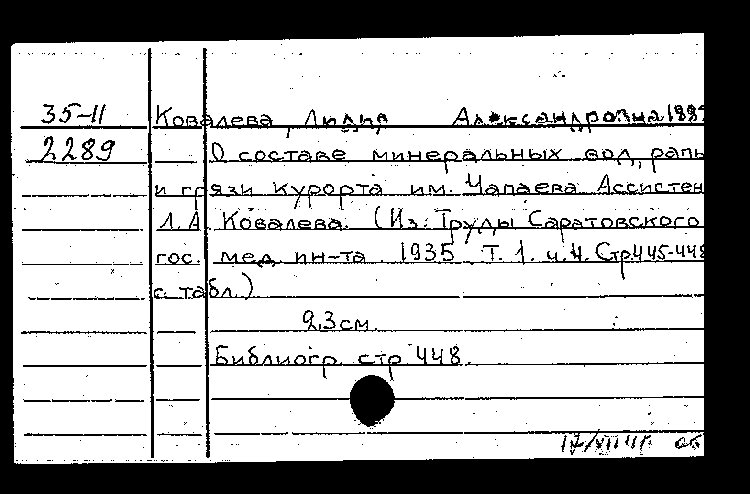 35-11 Ковалева, Лидия Александровна 188
2289 О составе минеральных вод, рапы
и грязи курорта им. Чапаева Ассистен
Л. А. Ковалева. (Из: Труды Саратовского
гос. мед. ин-та 1935 Т. 1. ч. 4. Стр 445-448
с табл.)
23 см.
Библиогр. стр 448.